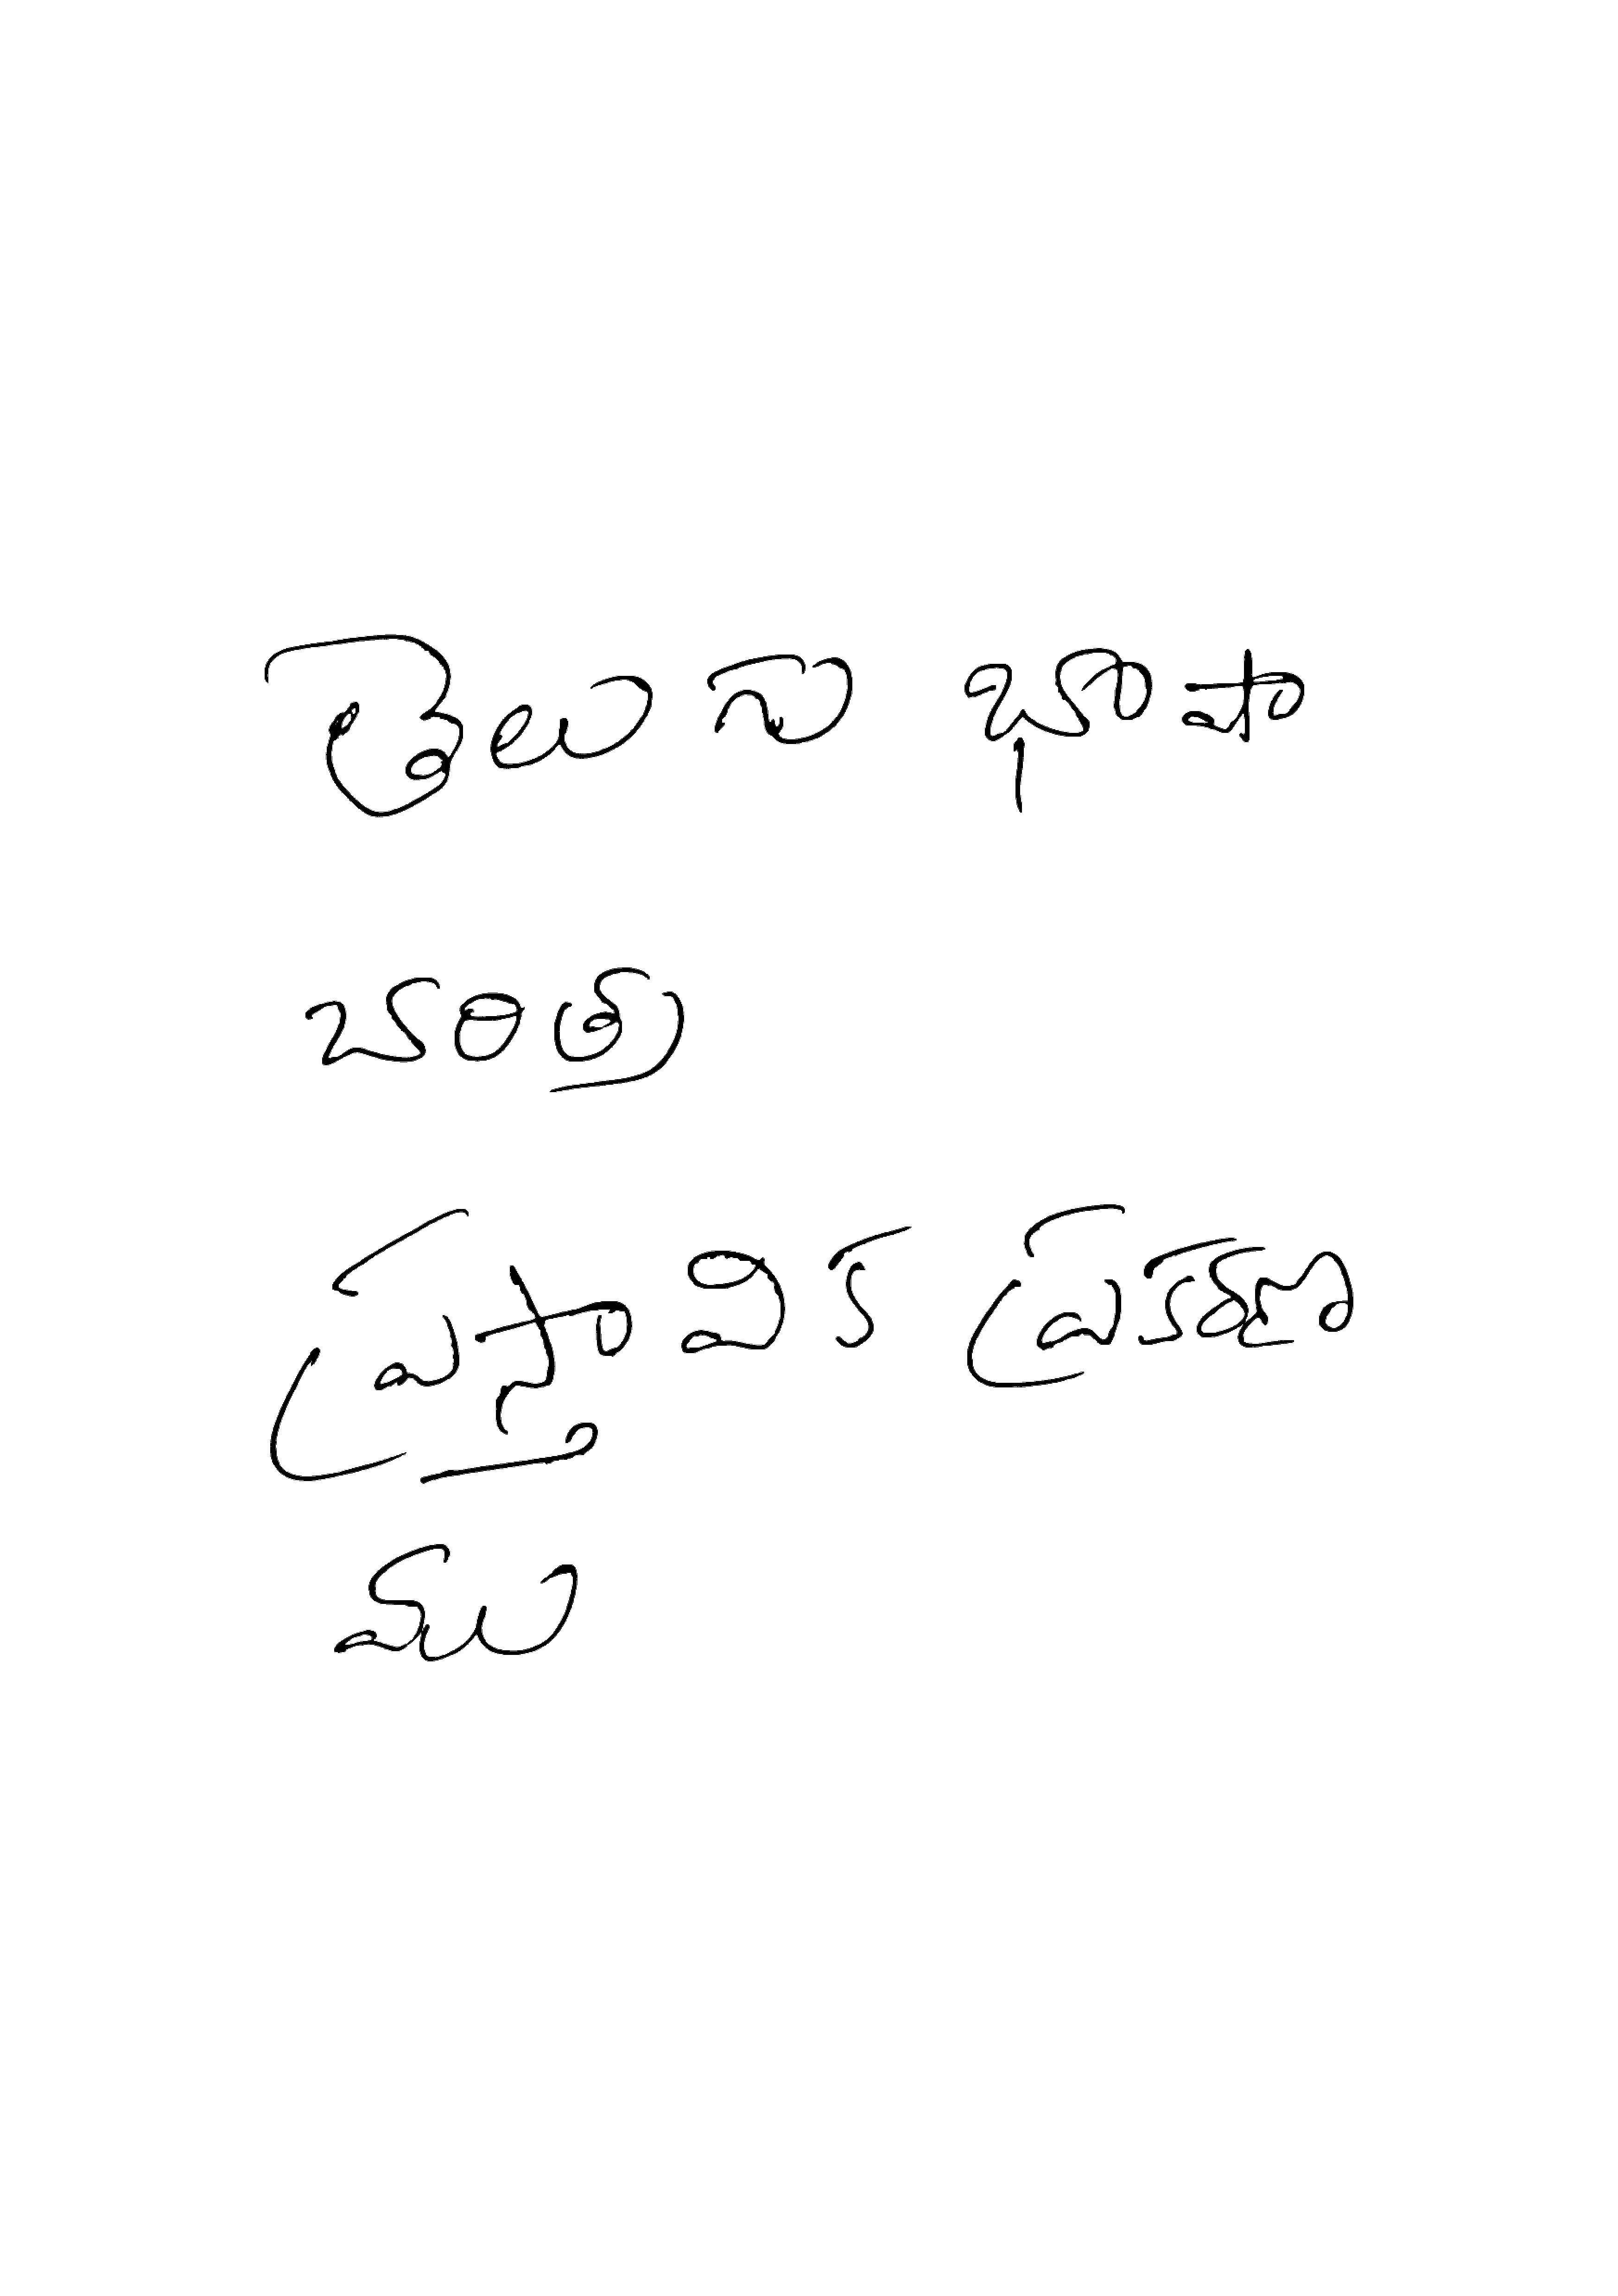 తెలుగు భాషా
చరిత్ర
ప్రస్తావిక ప్రకరణ
ము